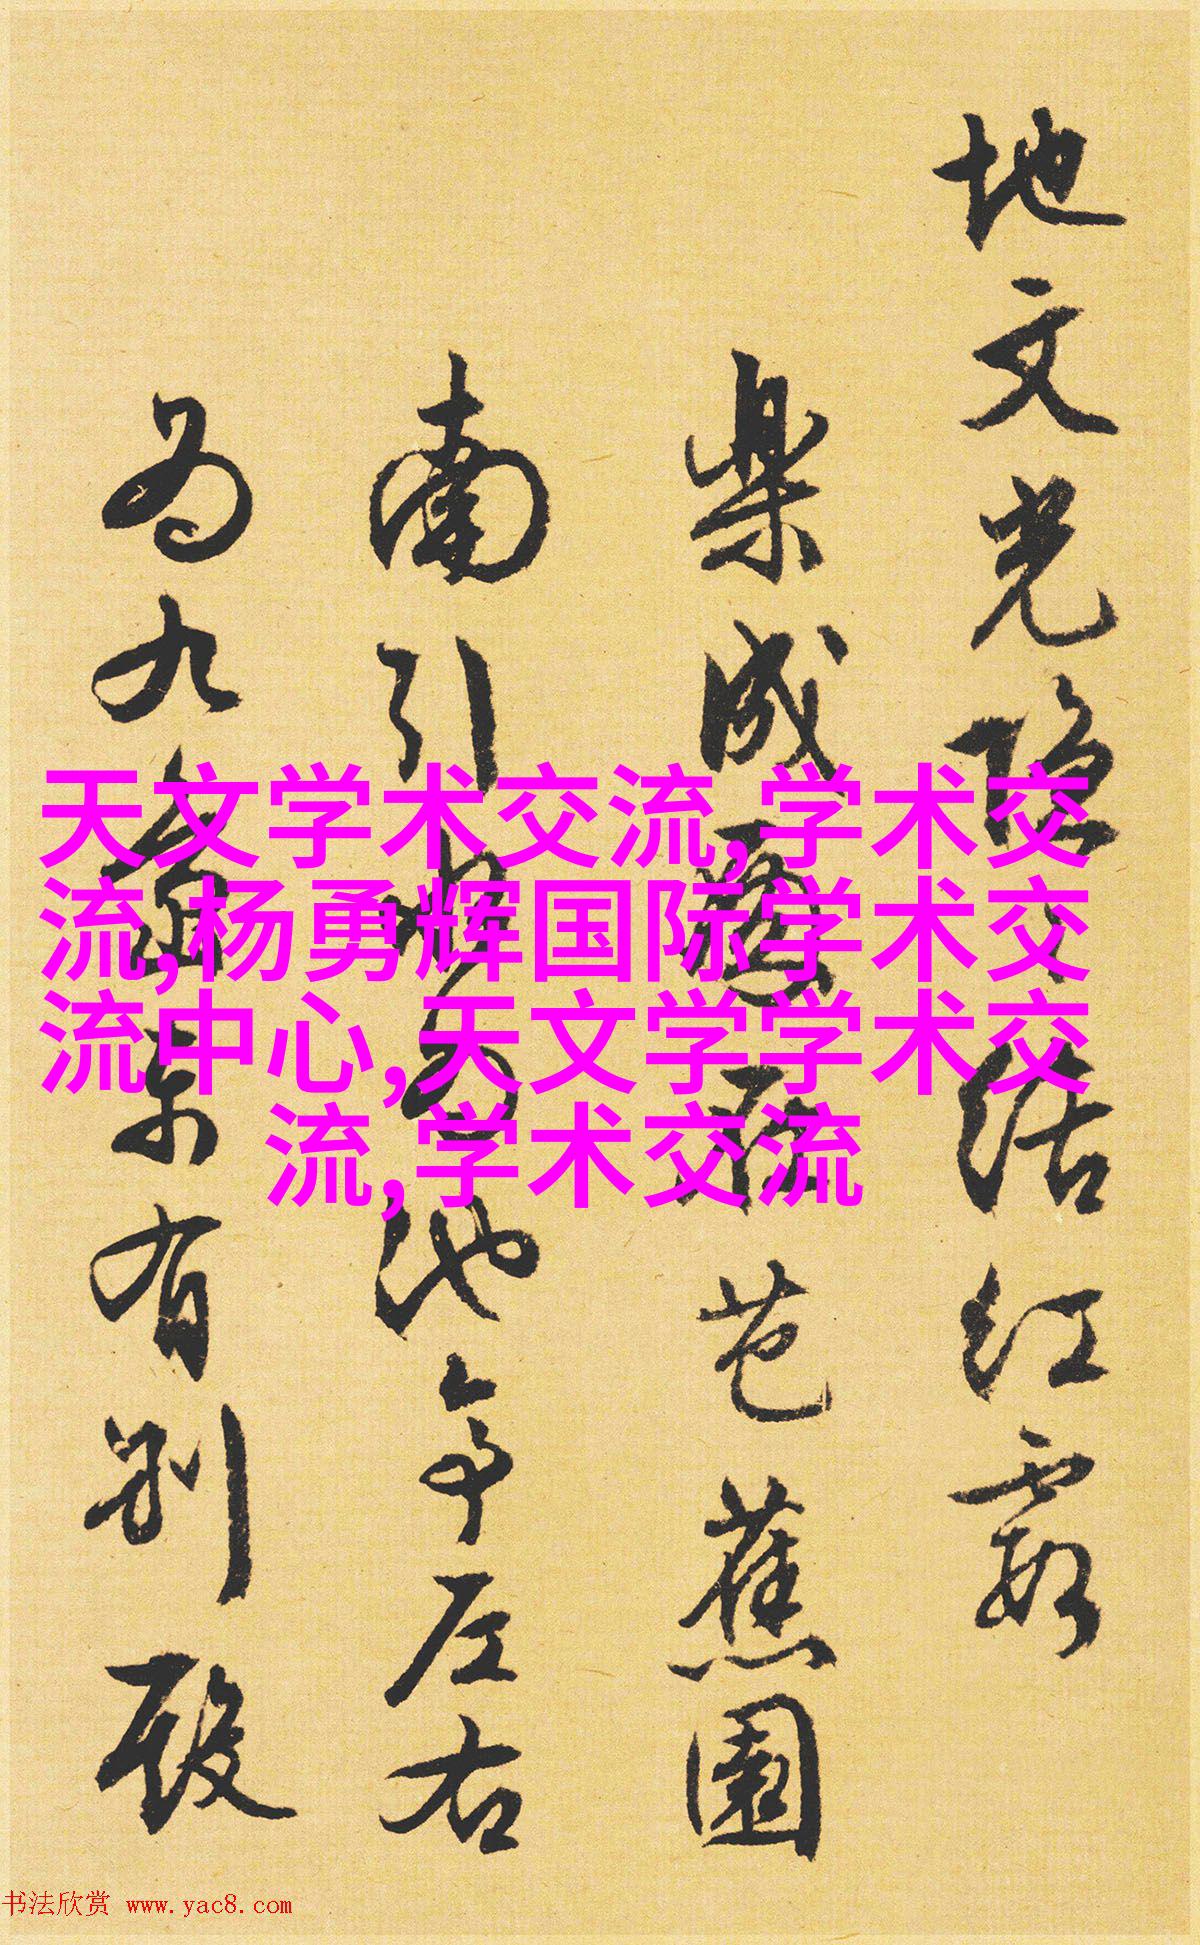 地文光隐结红霞
樂成芭蕉園
南引池亭左右
为九有别殿
天文学术交流,学术交
流,杨勇辉国际学术交
流中心,天文学学术交
流,学术交流
书法欣赏 www.yac8.com